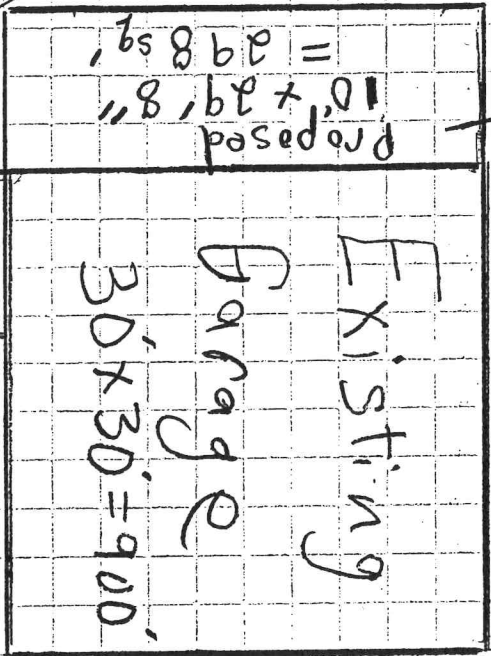 Proposed
10' x 29' 8"
= 298 sq'
Existing
Garage
30' x 30' = 900'